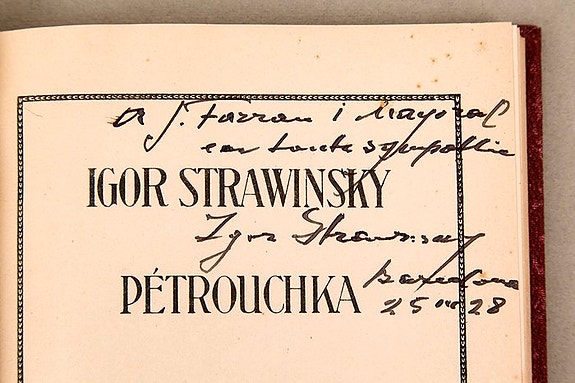 A J. Farran i Mayoral
en toute sympathie
IGOR STRAWINSKY
Igor Strawinsky
PÉTROUCHKA
Barcelona
25 III 28